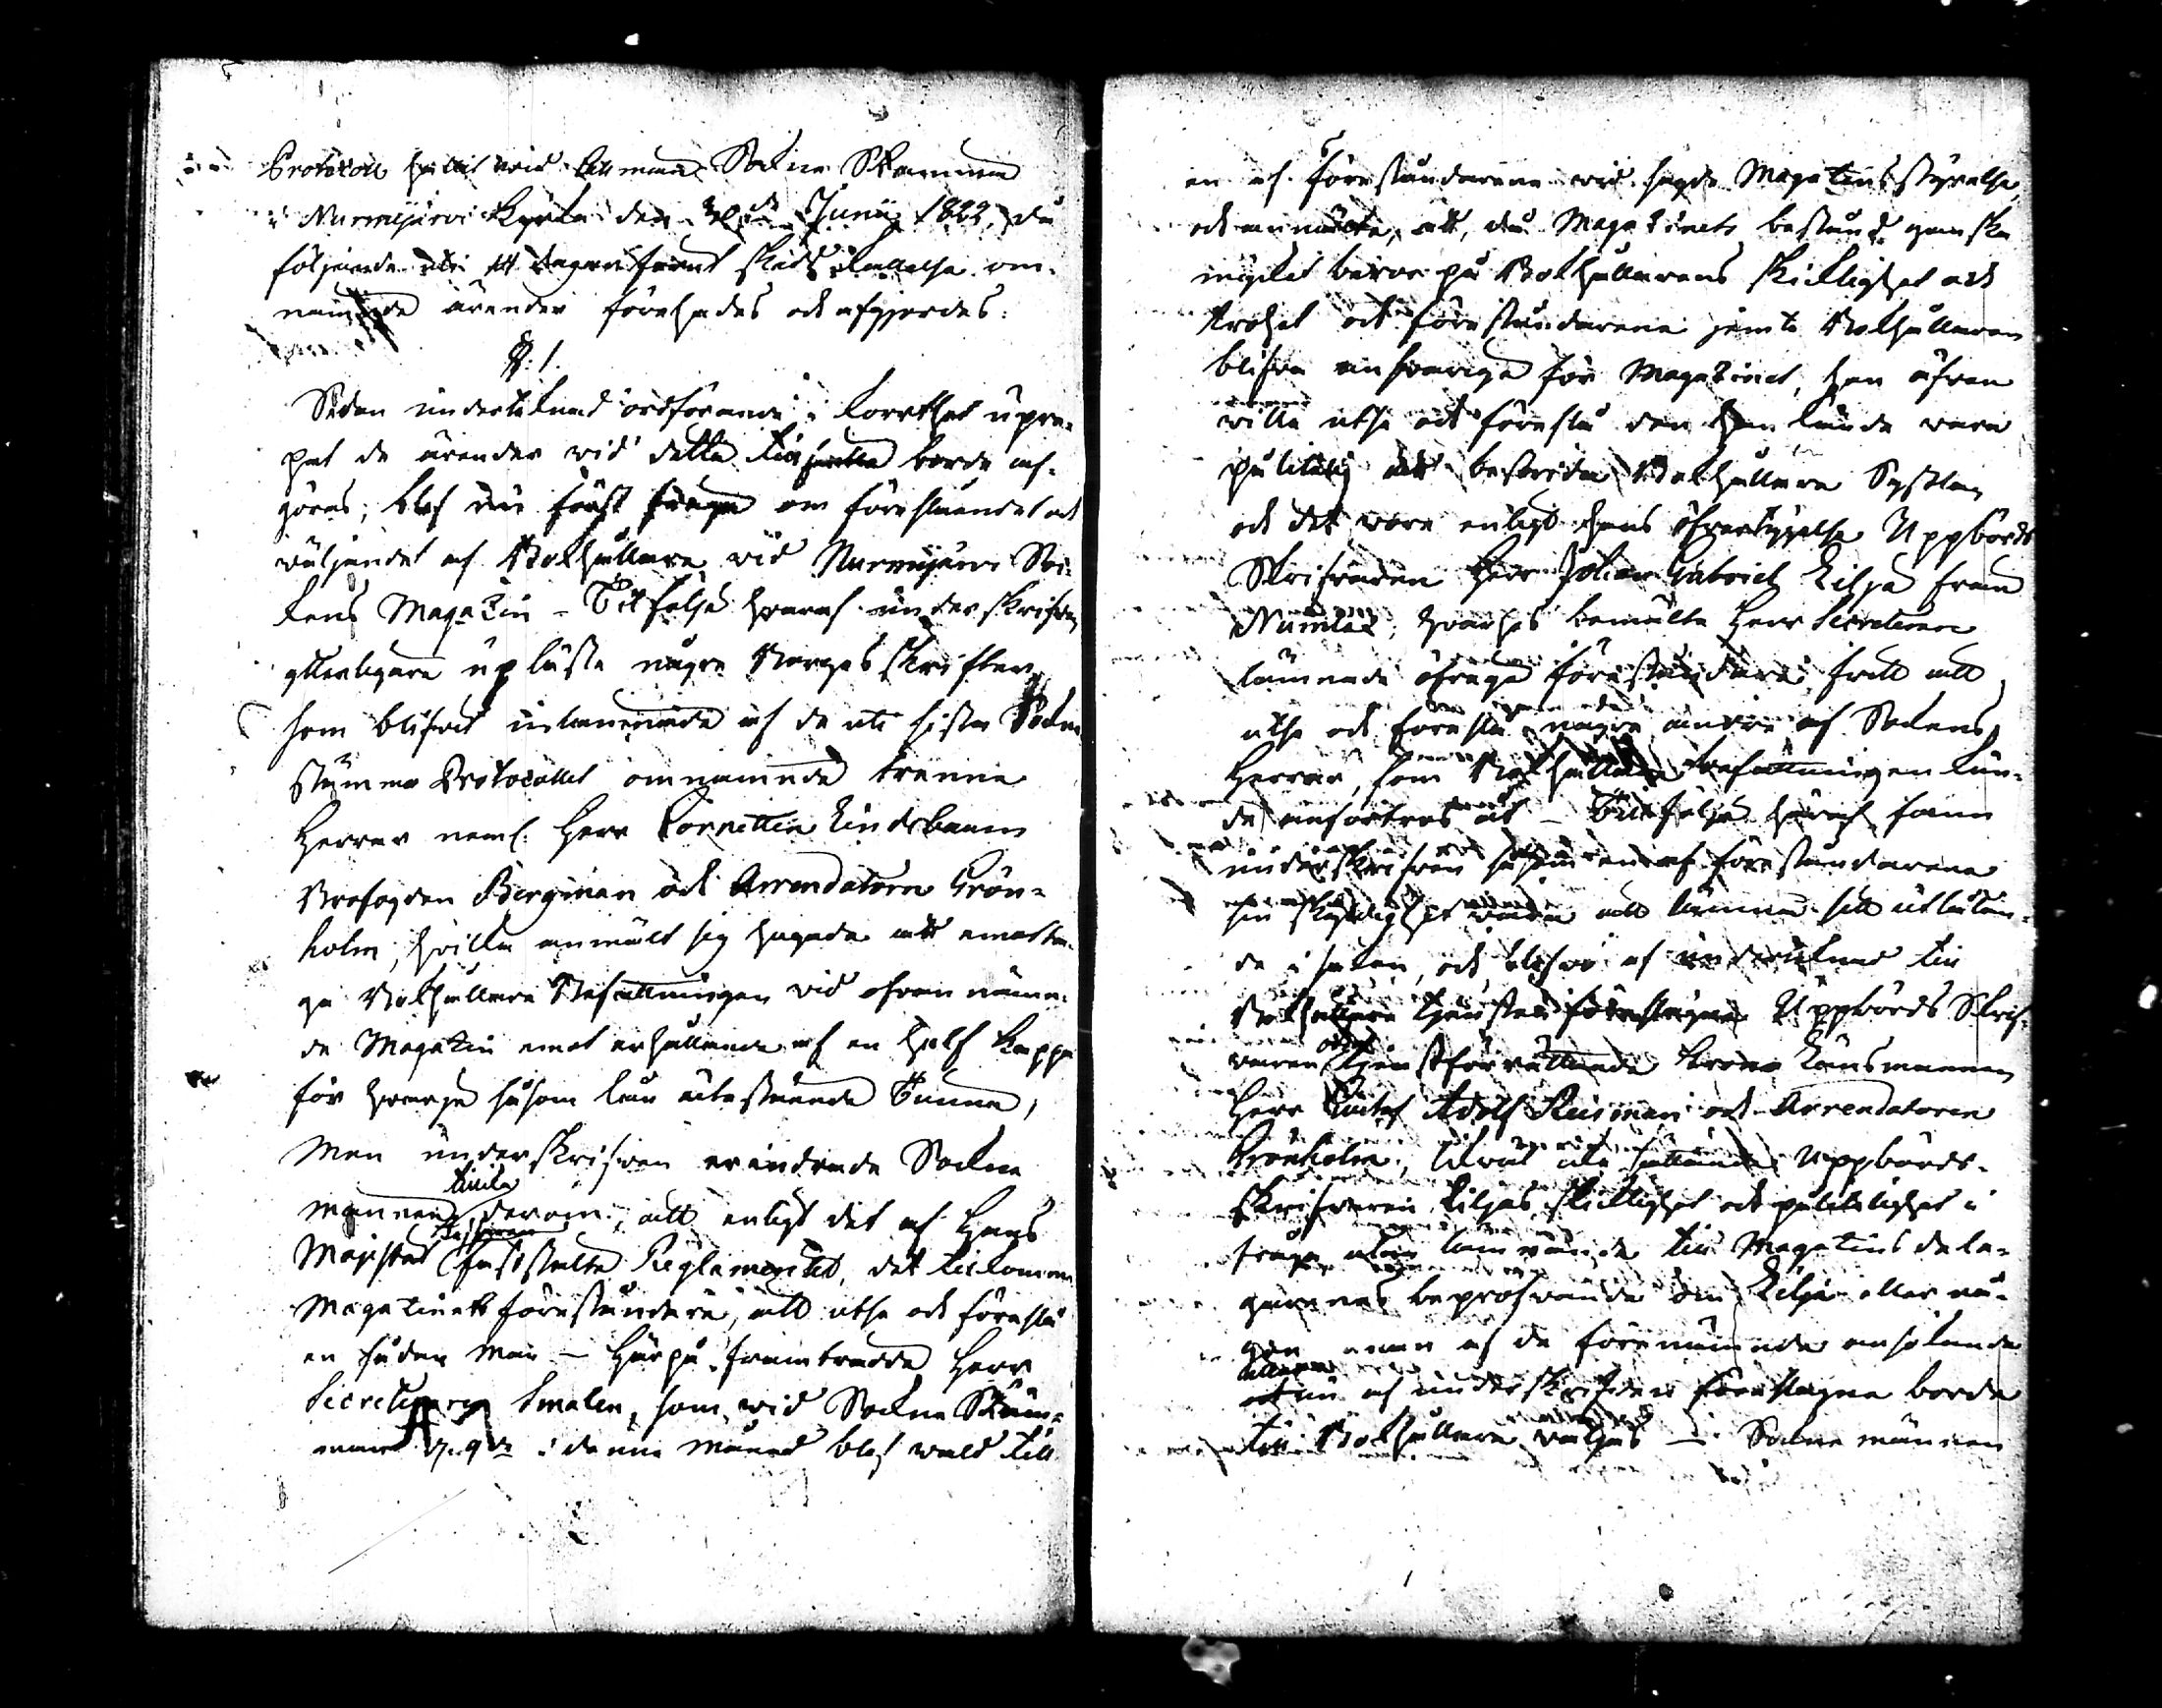 Protokoll hållit wid allmän Sockne Stämma
i Nurmijärvi Kyrka den 30de Junii 1822, då
följande uti 14 dagar förut skedd kallelse om-
nämnde ärender förehades och afgjordes:
§. 1.
Sedan undertecknad ordförande i korrthet upre-
pat de ärender wid detta tillfälle borde af-
göras; blef nu först fråga om föreslåendet och
wäljandet af Bokhållare wid Nurmijärvi Soc-
kens Magazin – Till följe hwaraf underskrifven
ytterligare upläste några Borgesskrifter,
som blifvit inlemnade af de uti sista Sockne
stämmo Protocollet omnämnde trenne
Herrar neml. Herr Cornetten Lindebaum
Brofogden Bergman och Arrendatorn Grön-
holm, hvilka anmält sig hugade att emotta-
ga Bokhållare Befattningen vid ofvannämn-
de Magazin emot erhållande af en half kappa
för hvarje såsom lån utestående Tunna,
Men underskrifven erindrade Sockne
männen derom, att enligt det af Hans
Majestät Kejsaren faststälta Reglementet, det tillkommer
Magazinets föreståndare, att utse och föreslå
en sådan man – Härpå framträdde Herr
Secreteraren Smalén, som wid Sockne Stäm-
man d. 9de i denne månad blef wald till
en af föreståndarene wid sagde Magazinsstyrelse,
och anmärkte, att, då Magazinets bestånd ganska
mycket beror på Bokhållarens skicklighet och
trohet och föreståndarena jemte Bokhållaren
blifva ansvarige för Magazinet, han äfven
wille utse och föreslå den han kände wara
pålitelig att bestrida Bokhållare Sysslan
och det wore enligt hans öfvertygelse Uppbörds
Skrifvaren Herr Johan Gabriel Lilja från
Numlax, hvarhos bemälte Herr Secreterare
lämnade öfrige föreståndare fritt att
utse och föreslå någre andre af Sockens
Herrar, som Bokhållare befattningen kun-
de anförtros åt – Till följe häraf fann
underskrifven såsom en af föreståndarena
sin skyldighet wara att lämna sitt utlåtan-
de i saken, och blefvo af undertecknad till
Bokhållare tjensten föreslagne Uppbörds Skrif-
varen Tjenstförrättande Krono Länsmannen
Herr Gustaf Adolf Reisman och Arrendatoren
Grönholm, likwäl icke sättande Uppbörds-
skrifvaren Liljas skicklighet och pålitelighet i
fråga utan lämnande till Magazins dela-
garenes bepröfvande om Lilja eller nå-
gon annan af de förenämnde ansökande
af underskrifven föreslagne borde
till Bokhållare wäljas – Sockne männen